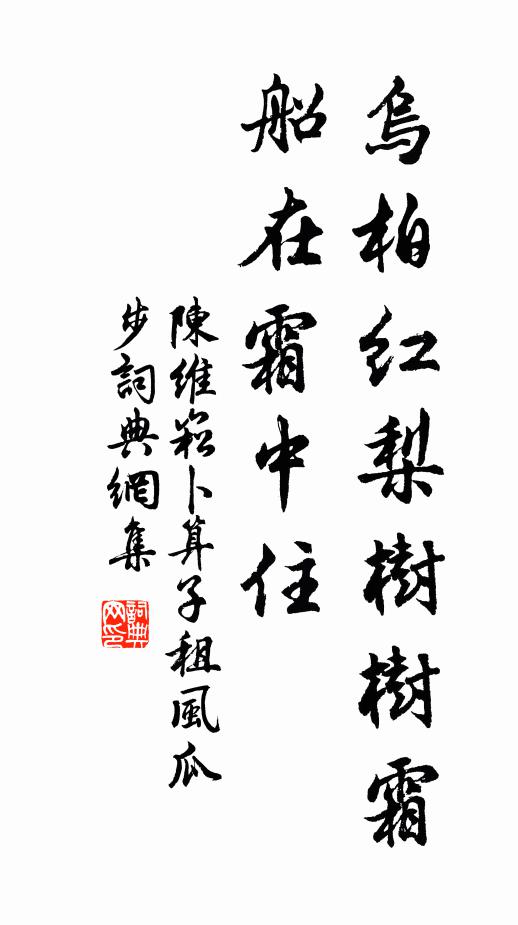 烏桕紅梨樹樹霜
船在霜中住
陳維崧卜算子租風瓜
步詞典網集
詞典网印